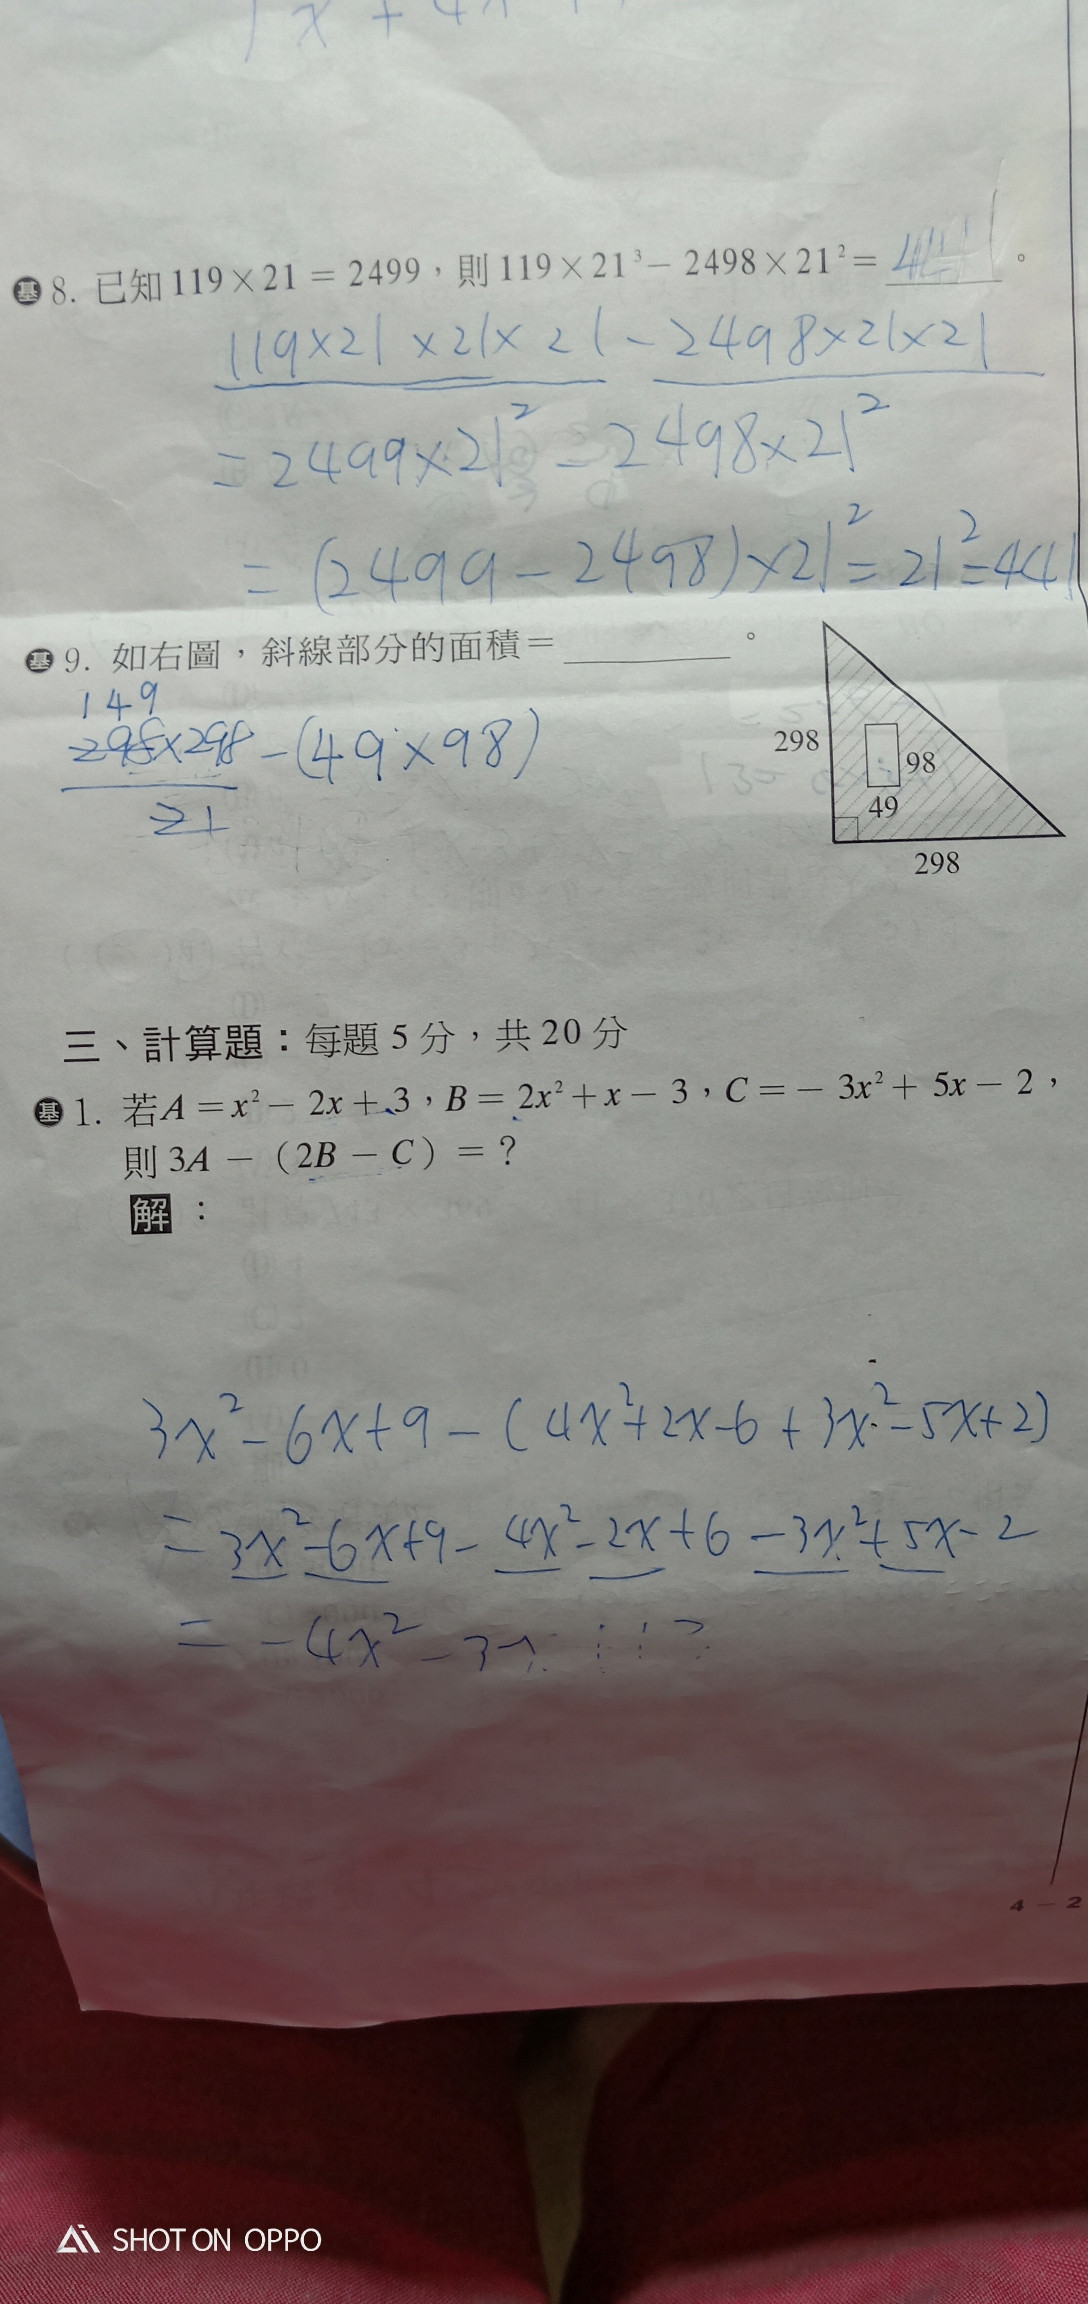 基 8. 已知 119×21 = 2499,則 119×21³ − 2498×21² = 441 。
119×21×21×21 − 2498×21×21
= 2499×21² − 2498×21²
= (2499 − 2498)×21² = 21² = 441
基 9. 如右圖,斜線部分的面積 = 。
149
298×298 − (49×98)
21
298
98
49
298
三、計算題:每題 5 分,共 20 分
基 1. 若A = x² − 2x + 3,B = 2x² + x − 3,C = − 3x² + 5x − 2,
則 3A − (2B − C) = ?
解:
3x² − 6x + 9 − (4x² + 2x − 6 + 3x² − 5x + 2)
= 3x² − 6x + 9 − 4x² − 2x + 6 − 3x² + 5x − 2
= −4x² − 3x
4 − 2
SHOT ON OPPO